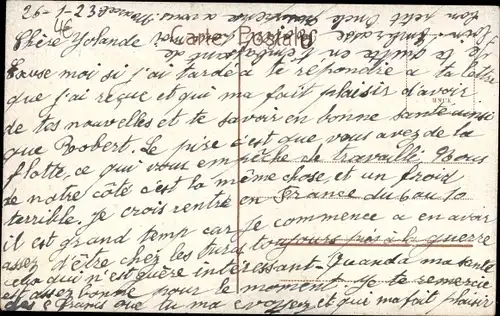 26-1-23
Carte Postale
Chère Yolande
Je te quitte en t'embrassant
Ton petit Oncle
Excuse moi si j'ai tardé a te répondre a ta lettre
que j'ai reçue et qui ma fait plaisir d'avoir
de tes nouvelles et te savoir en bonne santé ainsi
que Robert. Le pire c'est que vous avez de la
flotte, ce qui vous empêche de travaillé. Nous
de notre côté c'est la même chose et un froid
terrible, je crois rentré en France du 6 au 10
il est grand temp car je commence a en avoir
assez d'être chez les turcs toujours près à la guerre
celo qui n'est guère intéressant. Quand a ma santé
est assez bonne pour le moment. Je te remercie
des 5 francs que tu ma envoyez et qui ma fait plaisir